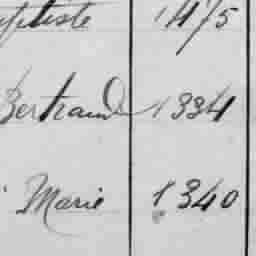 1475
Bertrand 1334
Marie 1340